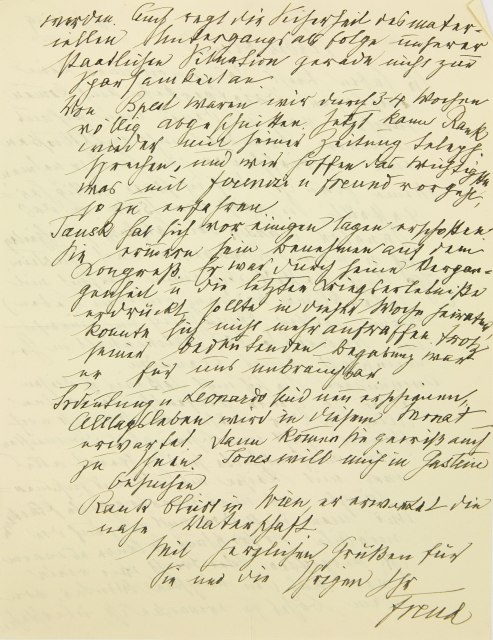 werden. Auch regt die Sicherheit des mater-
iellen Untergangs als Folge unserer
staatlichen Situation gerade nicht zur
Sparsamkeit an.
Von Bpest waren wir durch 3-4 Wochen
völlig abgeschnitten. Jetzt kann Rank
wieder mit seiner Zeitung teleph.
sprechen, und wir hoffen das Wichtigste
was mit Ferenczi u Freund vorgeht,
so zu erfahren.
Tausk hat sich vor einigen Tagen erschossen
Sie erinnern sein Benehmen auf dem
Kongreß. Er war durch seine Vergan-
genheit u die letzten Kriegserlebniße
erdrückt, sollte in dieser Woche heiraten,
konnte sich nicht mehr aufraffen. Trotz
seiner bedeutenden Begabung war
er für uns unbrauchbar
Trdeutung u Leonardo sind neu erschienen,
Alltagsleben wird in diesem Monat
erwartet. Dann kommt sie gewiß auch
zu Ihnen. Jones will mich in Gastein
besuchen
Rank bleibt in Wien er erwartet die
nahe Vaterschaft
Mit herzlichen Grüßen für
Sie und die Ihrigen Ihr
Freud